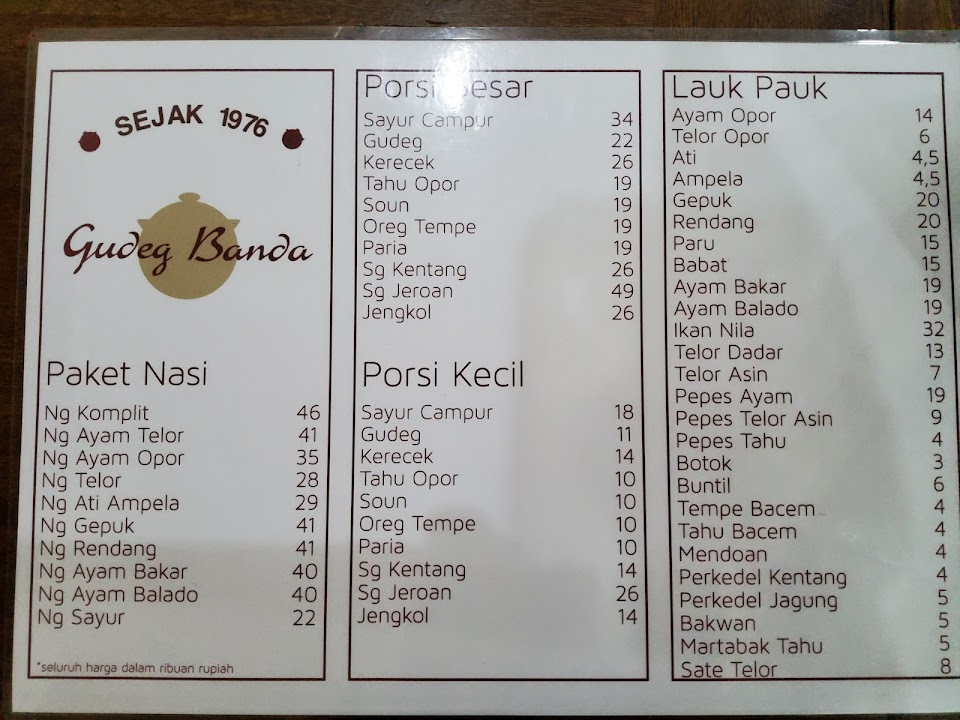 SEJAK 1976
Gudeg Banda
Paket Nasi
Ng Komplit 46
Ng Ayam Telor 41
Ng Ayam Opor 35
Ng Telor 28
Ng Ati Ampela 29
Ng Gepuk 41
Ng Rendang 41
Ng Ayam Bakar 40
Ng Ayam Balado 40
Ng Sayur 22
*seluruh harga dalam ribuan rupiah
Porsi Besar
Sayur Campur 34
Gudeg 22
Kerecek 26
Tahu Opor 19
Soun 19
Oreg Tempe 19
Paria 19
Sg Kentang 26
Sg Jeroan 49
Jengkol 26
Porsi Kecil
Sayur Campur 18
Gudeg 11
Kerecek 14
Tahu Opor 10
Soun 10
Oreg Tempe 10
Paria 10
Sg Kentang 14
Sg Jeroan 26
Jengkol 14
Lauk Pauk
Ayam Opor 14
Telor Opor 6
Ati 4,5
Ampela 4,5
Gepuk 20
Rendang 20
Paru 15
Babat 15
Ayam Bakar 19
Ayam Balado 19
Ikan Nila 32
Telor Dadar 13
Telor Asin 7
Pepes Ayam 19
Pepes Telor Asin 9
Pepes Tahu 4
Botok 3
Buntil 6
Tempe Bacem 4
Tahu Bacem 4
Mendoan 4
Perkedel Kentang 4
Perkedel Jagung 5
Bakwan 5
Martabak Tahu 5
Sate Telor 8